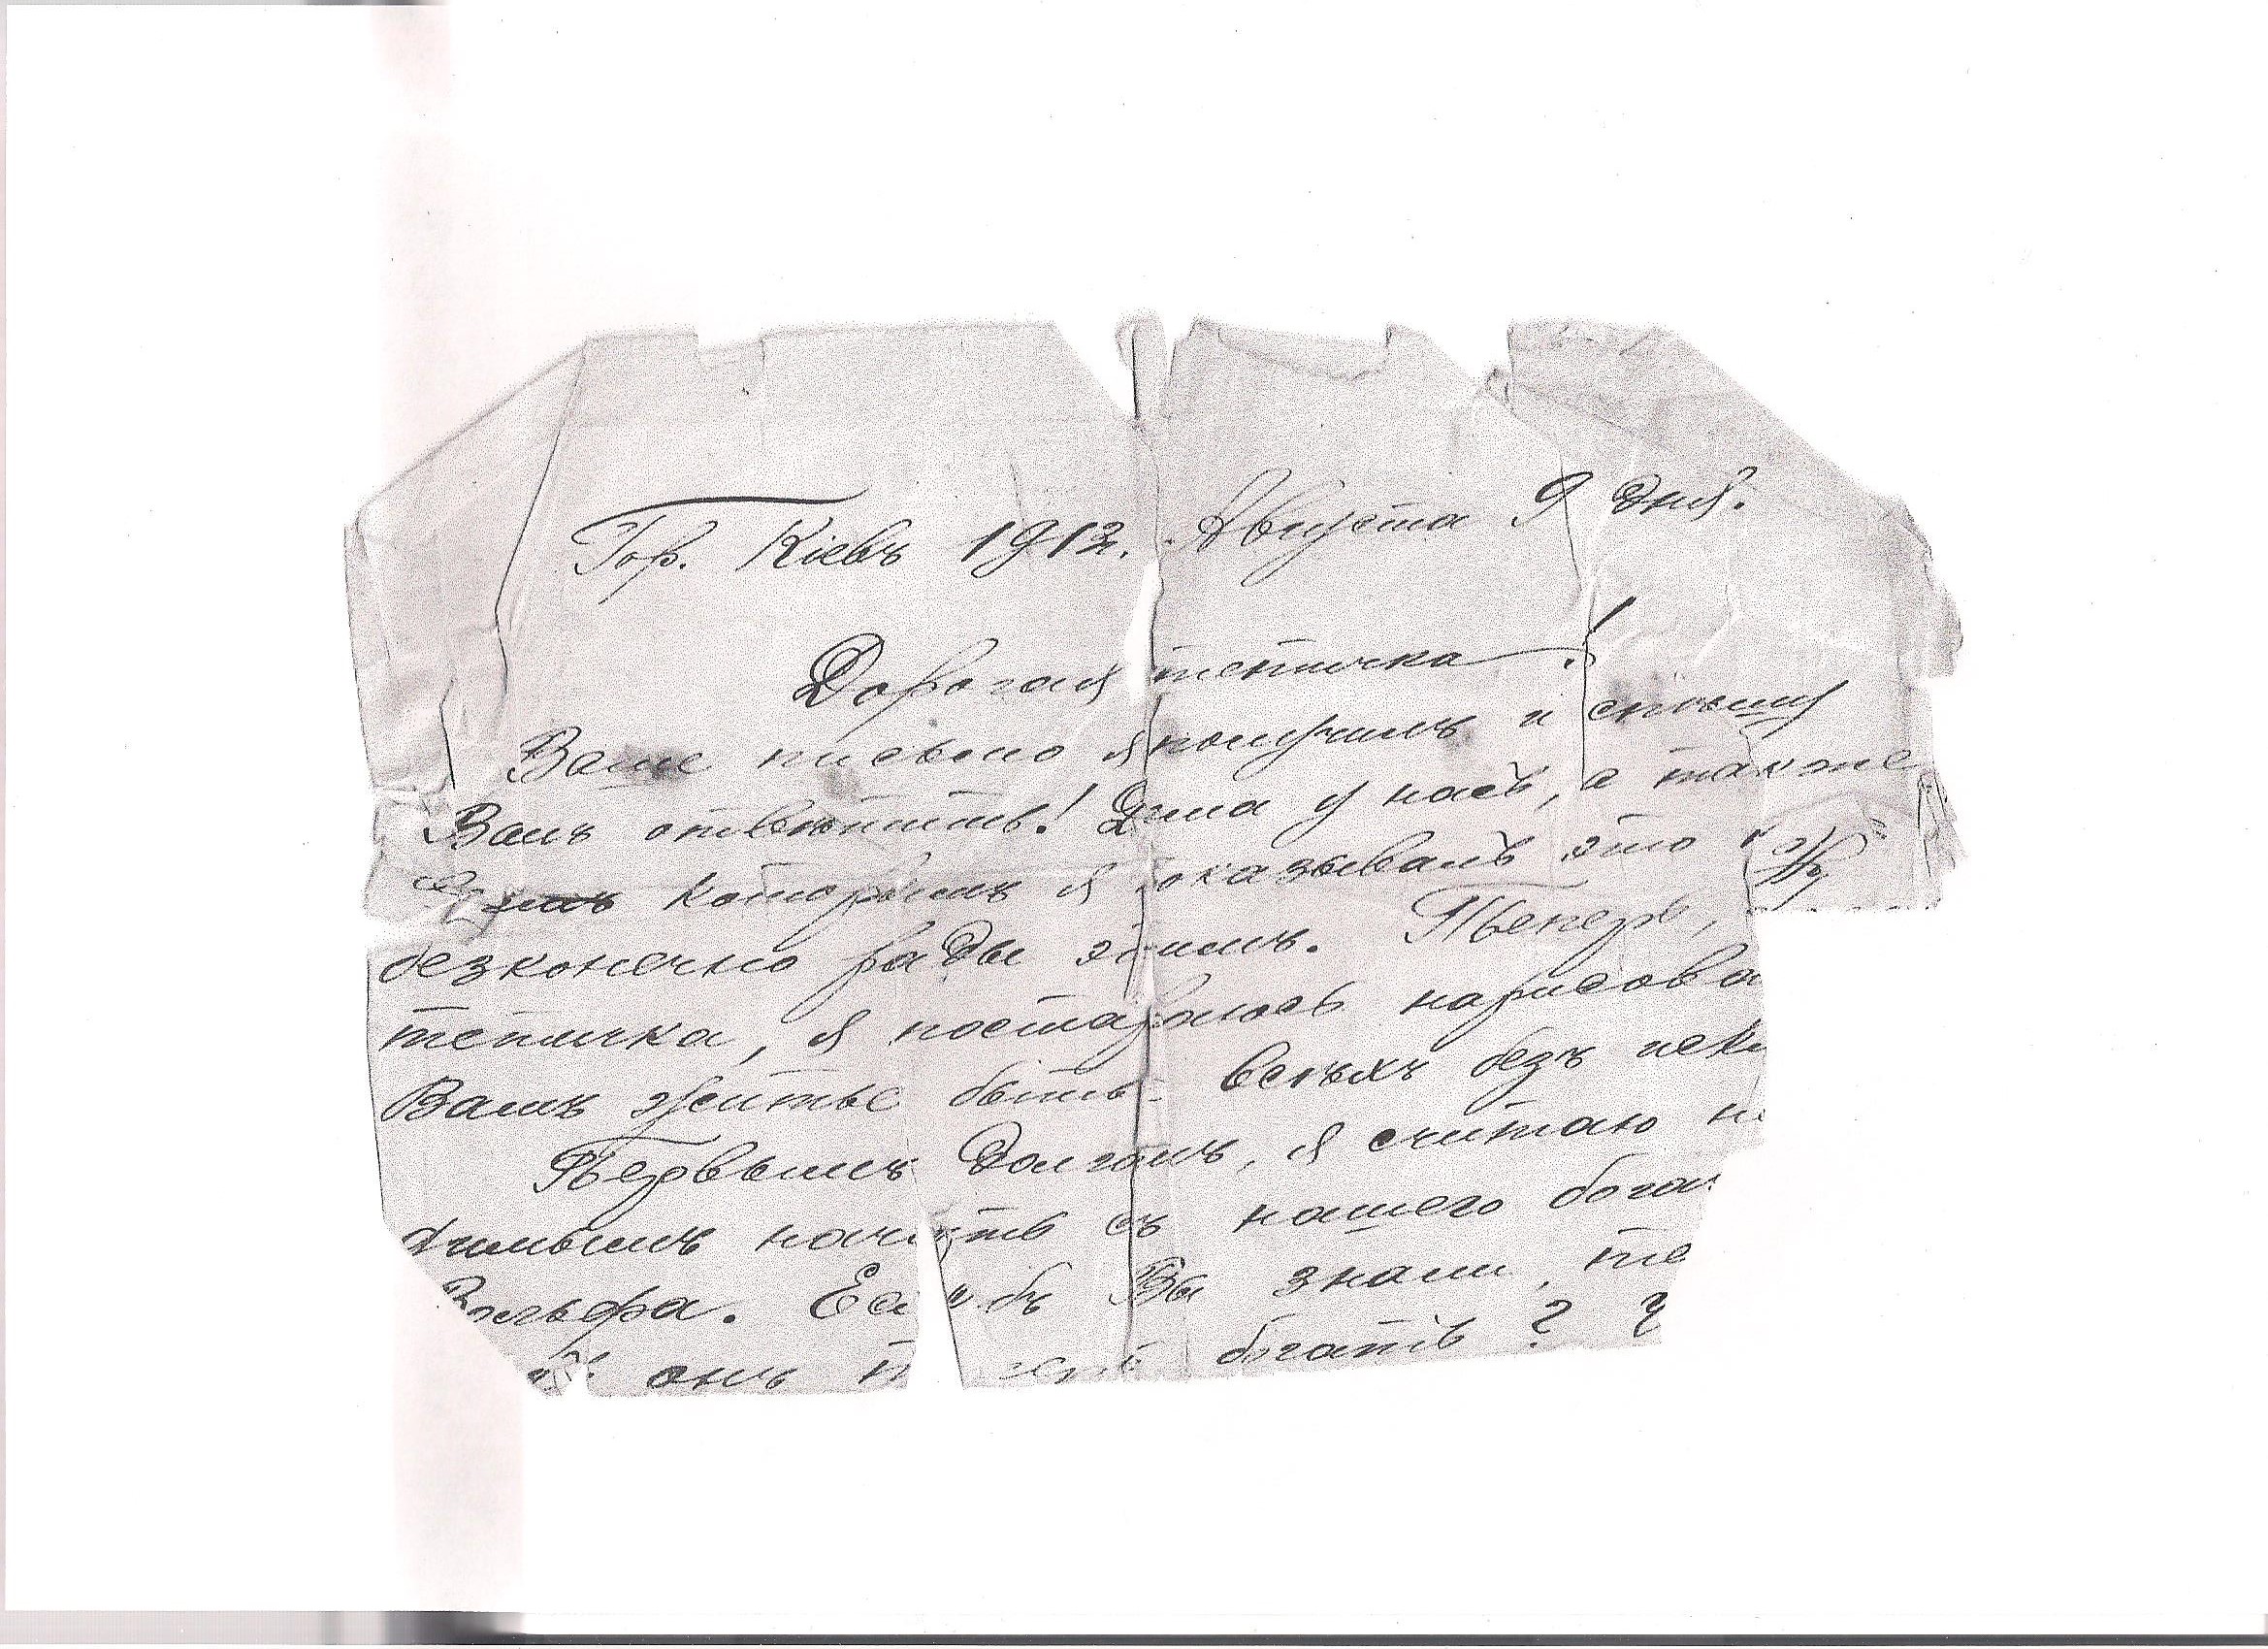 Гор. Кіевъ 1913. Августа 9 дня.
Дорогая тетичка!
Ваше письмо я получилъ и спѣшу
Вамъ отвѣтить! Дита у насъ, а также
которымъ я показывалъ это
безконечно рады этимъ. Теперь,
тетичка, я постараюсь нарисова
Вамъ житье бытье всѣхъ безъ иск
Первымъ долгомъ, я считаю н
начать съ нашего бога
Вольфа. Если бъ Вы знали, те
онъ богатъ?